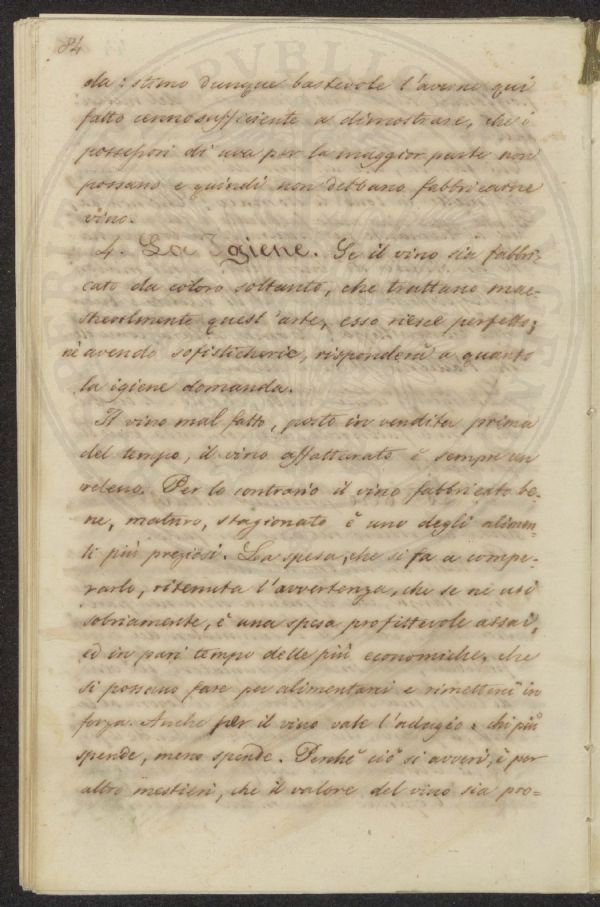 84
da: stimo dunque bastevole l'averne qui
fatto cenno sufficiente a dimostrare, che i
possessori di uva per la maggior parte non
possano e quindi non debbano fabbricarne
vino.
4. La Igiene. Se il vino sia fabbri=
cato da coloro soltanto, che trattano mae=
strevolmente quest'arte, esso riesce perfetto;
nè avendo sofisticherie, risponderà a quanto
la igiene domanda.
Il vino mal fatto, posto in vendita prima
del tempo, il vino affatturato è sempre un
veleno. Per lo contrario il vino fabbricato be=
ne, maturo, stagionato è uno degli alimen=
ti più preziosi. La spesa, che si fa a compe=
rarlo, ritenuta l'avvertenza, che se ne usi
sobriamente, è una spesa profittevole assai,
ed in pari tempo delle più economiche, che
si possano fare per alimentarsi e rimettersi in
forza. Anche per il vino vale l'adagio: chi più
spende, meno spende. Perchè ciò si avveri, è per
altro mestieri, che il valore del vino sia pro=